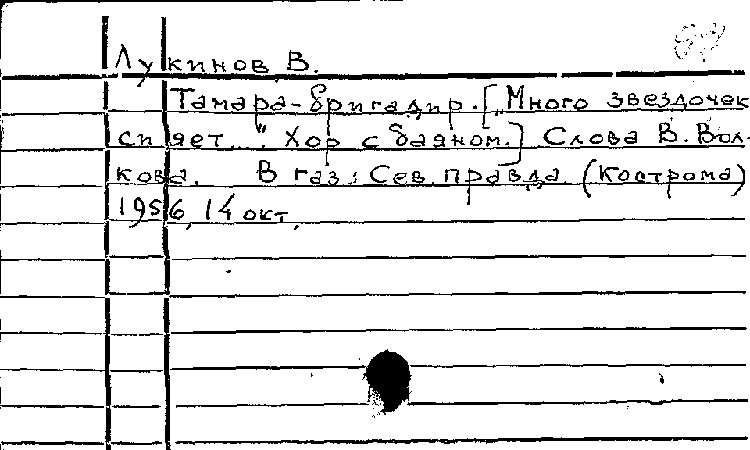 Лукинов В.
Тамара-бригадир. [„Много звездочек
сияет..." Хор с баяном.] Слова В. Вол-
кова. В газ.: Сев. правда (Кострома)
1956, 14 окт.